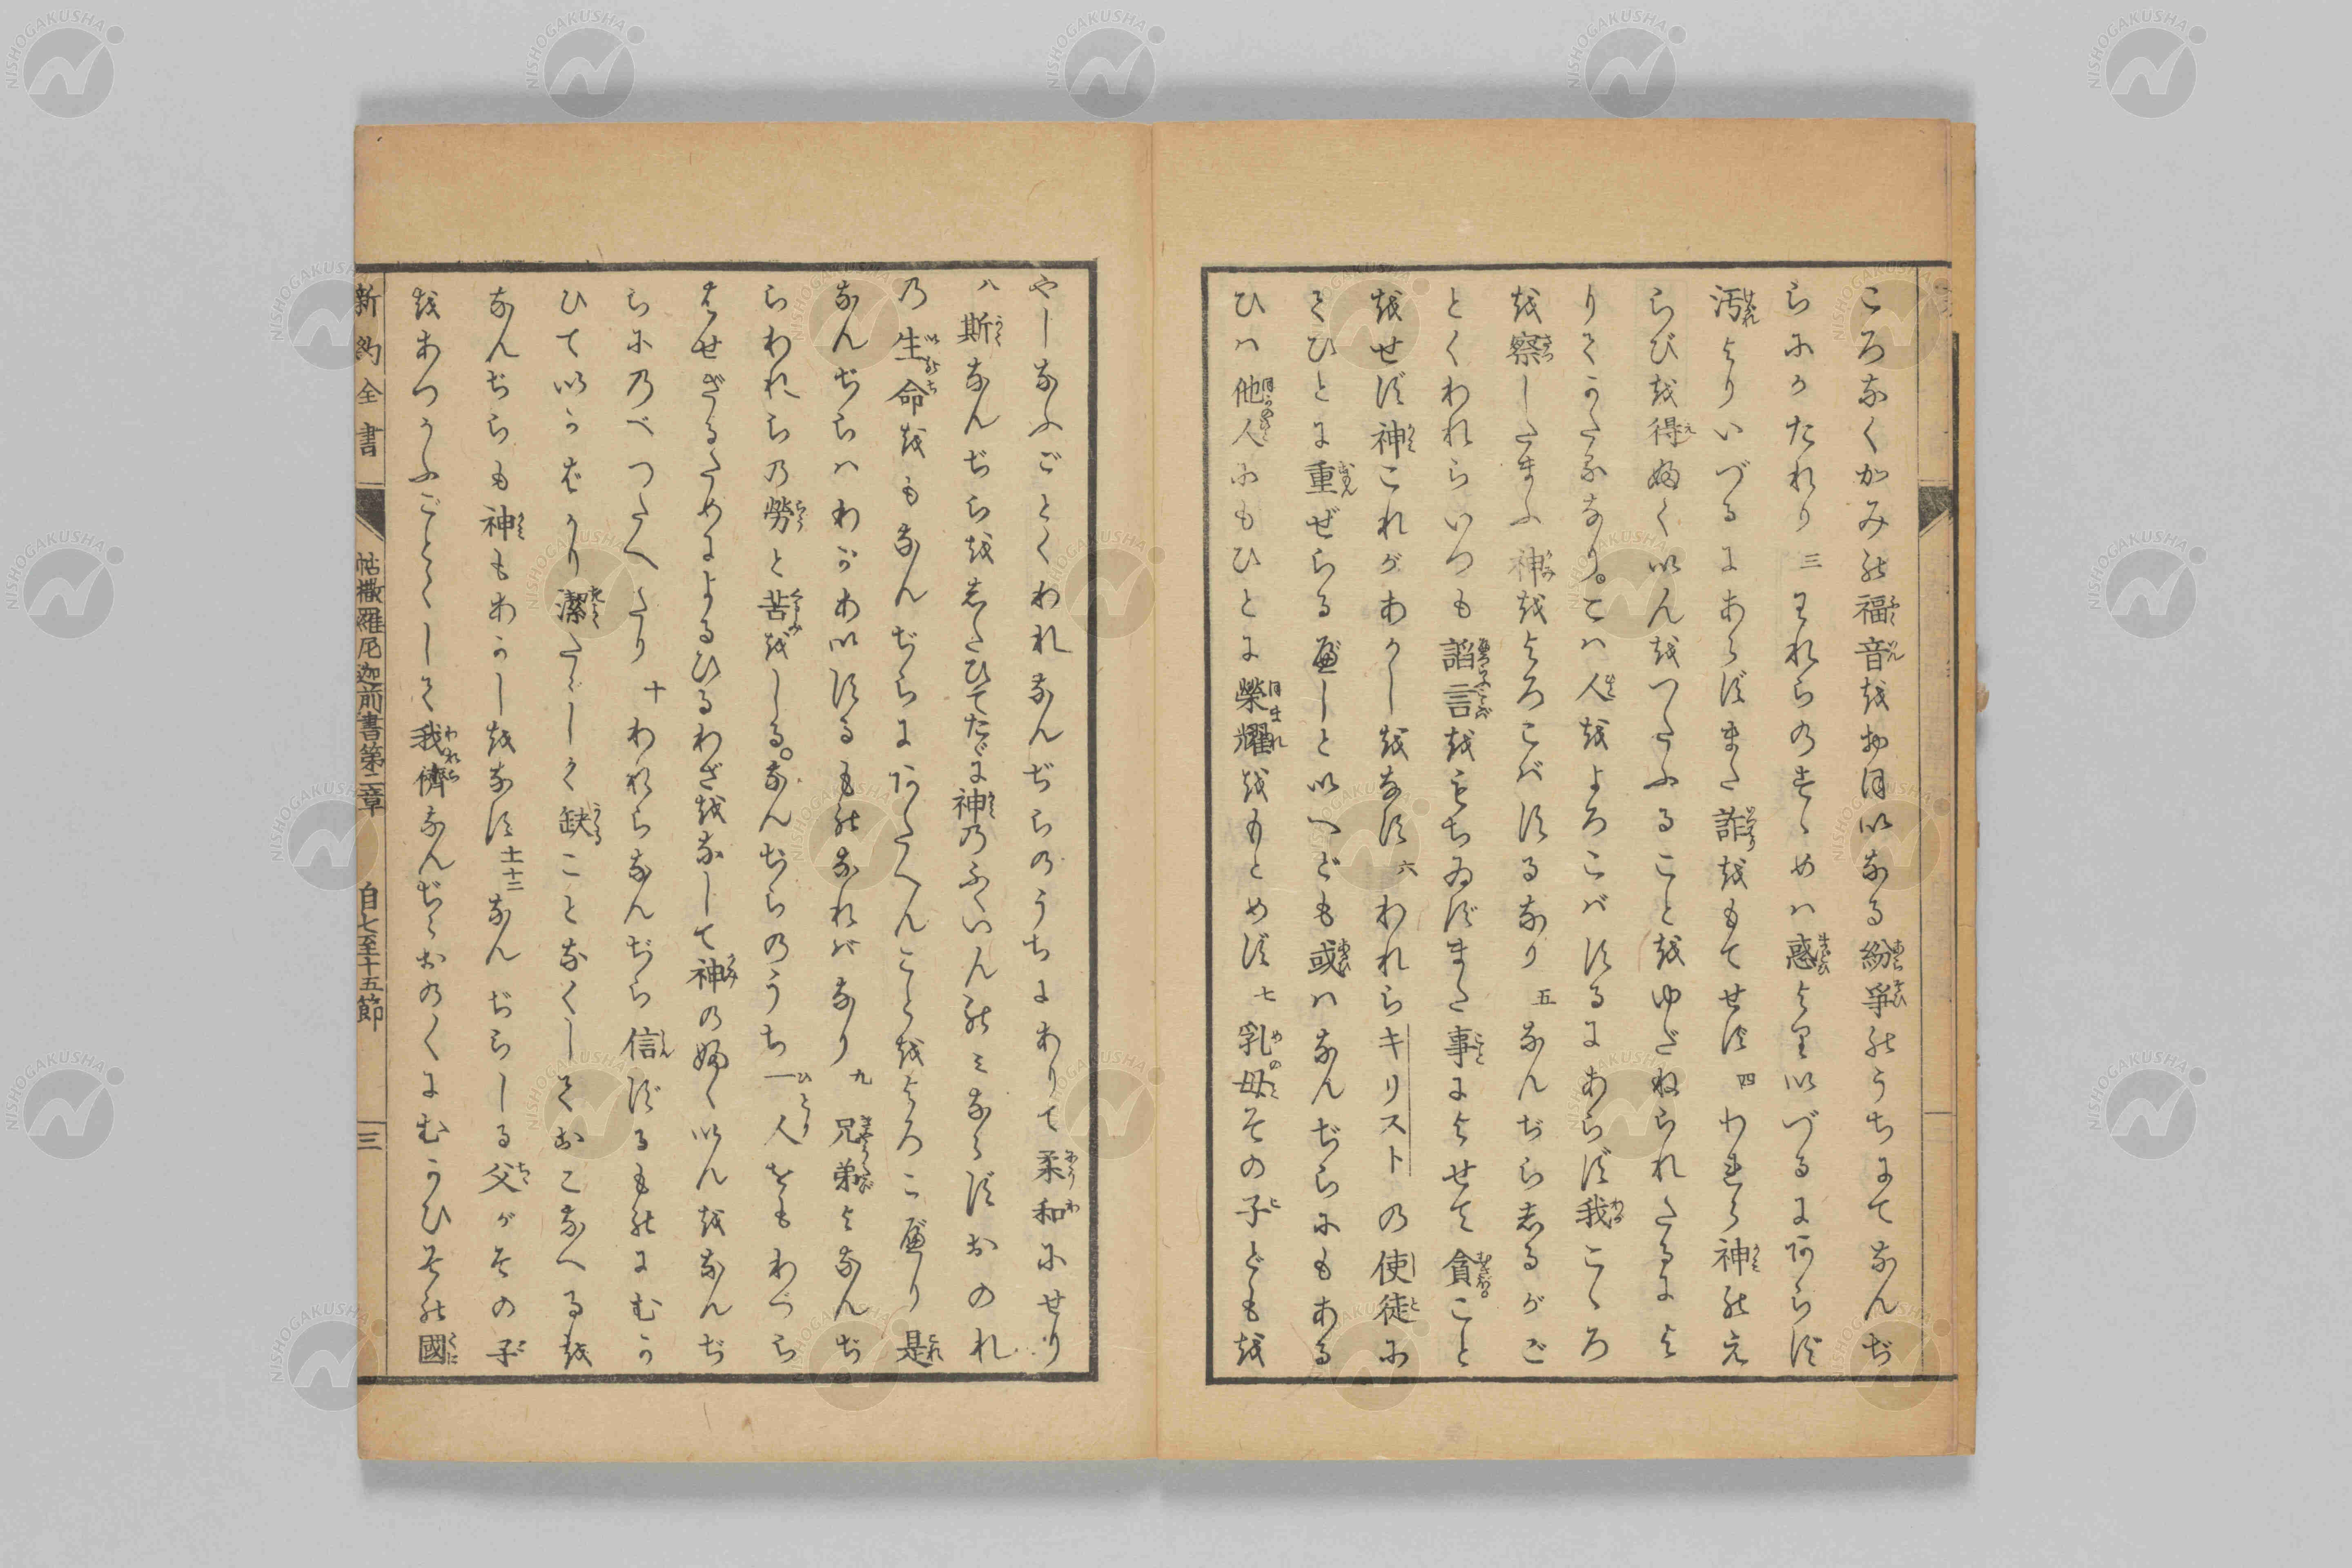 ころなくかみの福音をおほいなる紛爭のうちにてなんぢ
らにかたれり 三 われらのすゝめハ惑よりいづるにあらず
汚よりいづるにあらずまた詐をもてせず 四 われら神のえ
らびを得ふくいんをつたふることをゆだねられたるによ
りてかたるなり。こハ人をよろこバするにあらず我こゝろ
を察したまふ神をよろこバするなり 五 なんぢらしるがご
とくわれらいつも諂言をもちゐずまた事によせて貪こと
をせず神これがあかしをなす 六 われらキリストの使徒に
てひとに重ぜらるべしといへども或ハなんぢらにもある
ひハ他人にもひとに榮耀をもとめず 七 乳母その子どもを
やしなふごとくわれなんぢらのうちにありて柔和にせり
八 斯なんぢらをしたひてたゞに神のふくいんのミならずおのれ
の生命をもなんぢらにあたへんことをよろこべり是
なんぢらハわがあいするものなればなり 九 兄弟よなんぢ
らわれらの勞と苦をしる。なんぢらのうち一人をもわづら
はせざるためによるひるわざをなして神のふくいんをなんぢ
らにのべつたへたり 十 われらなんぢら信ずるものにむか
ひていかばかり潔たゞしく缺ことなくしておこなへるを
なんぢらも神もあかしをなす 十一十二 なんぢらしる父がその子
をあつかふごとくして我儕なんぢらおの〱にむかひその國
新約全書 帖撒羅尼迦前書第二章 自七至十五節 三